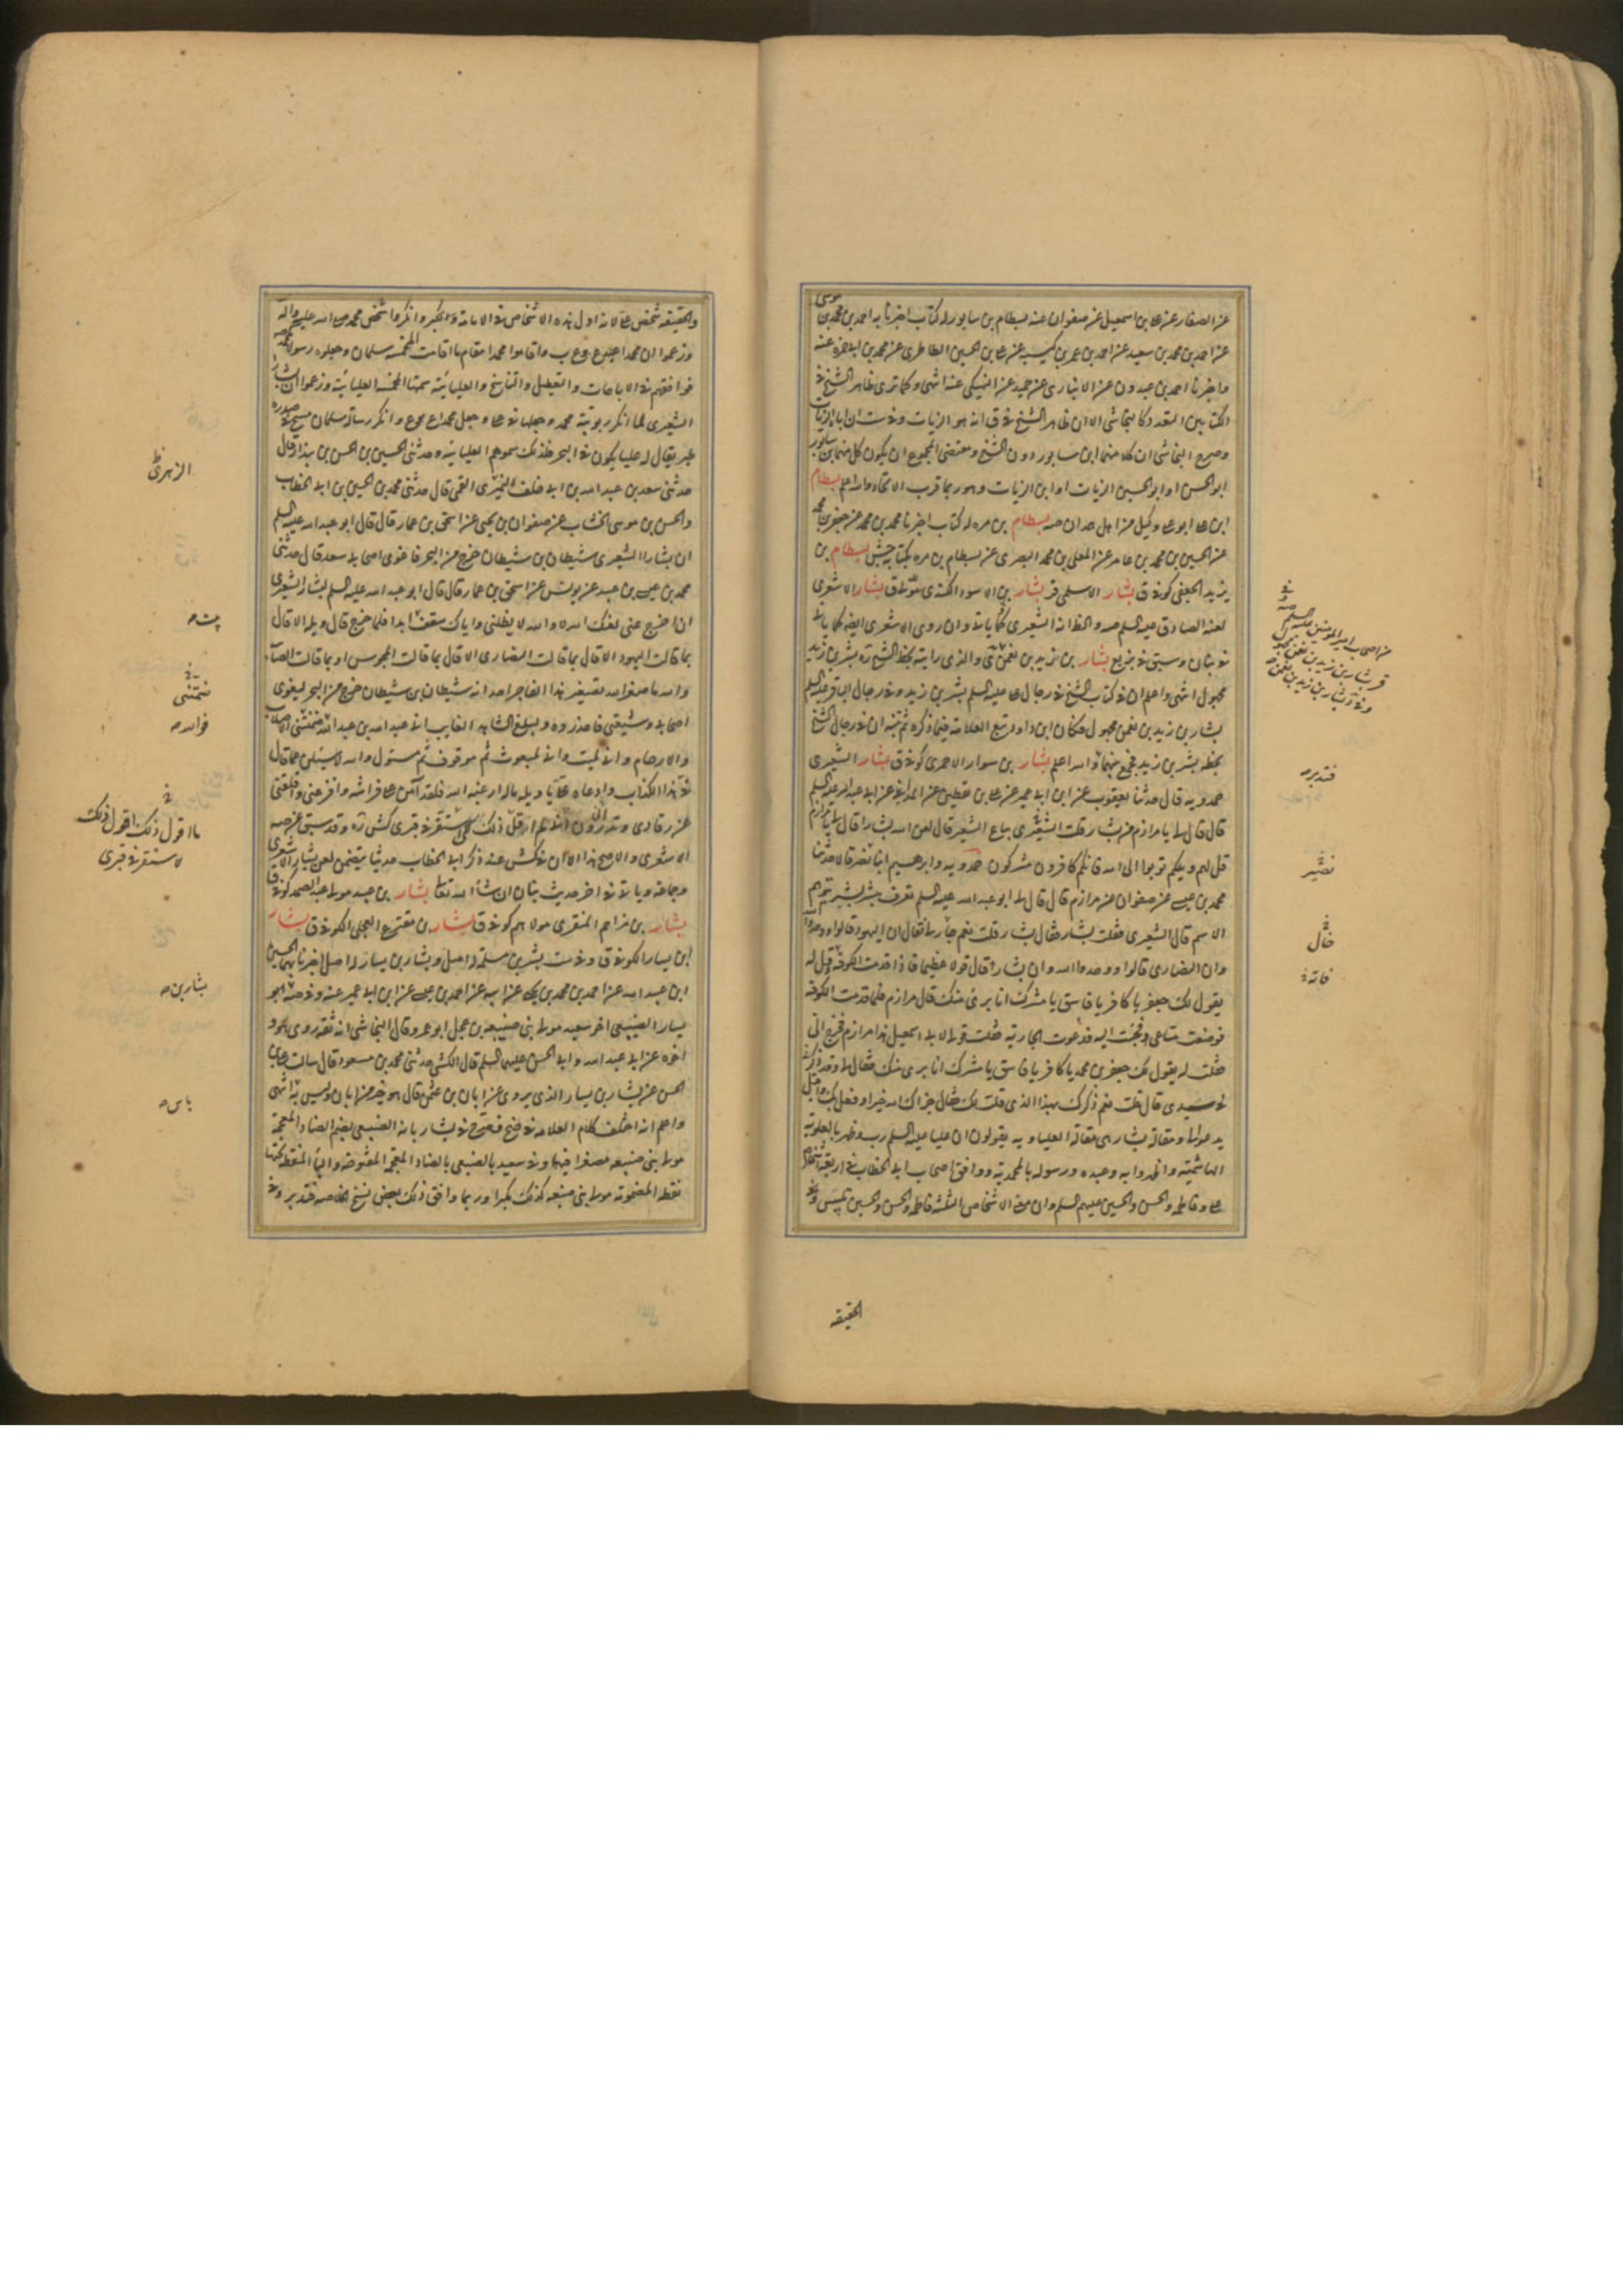 عن الصفار عن علي بن اسمعيل عن صفوان عنه بسطام بن سابور له كتاب اخبرنا به احمد بن محمد بن موسى
عن احمد بن محمد بن سعيد عن احمد بن عمر بن كيسبه عن علي بن الحسن الطاطري عن محمد بن ابي حمزه عنه
واخبرنا احمد بن عبدون عن الانباري عن حميد عن النهيكي عنه انتهى وكما ترى ظاهر الشيخ في
الكتابين التعدد كالنجاشي الا ان ظاهر الشيخ في ق انه هو الزيات وفي ست ان ابا الزيات
وصرح النجاشي ان كلا منهما ابن سابور دون الشيخ ومقتضى المجموع ان يكون كل منهما بن سابور
ابو الحسن او ابو الحسين الزيات او ابن الزيات وهو ربما قرب الاتحاد والله اعلم بسطام
ابن علي ابو علي وكيل من اهل همدان صه بسطام بن مره له كتاب اخبرنا محمد بن محمد عن جعفر بن محمد
عن الحسين بن محمد بن عامر عن المعلى بن محمد البصري عن بسطام بن مره بكتابه جش بسطام بن
يزيد الجعفي كوفي ق بشار الاسلمي قر بشار بن الاسود الكندي مولاهم ق بشار الاشعري
لعنه الصادق عليه السلم صه والظ انه الشعيري كما ياتي وان روى الاشعري ايضا كما ياتي
في بنان وسبق في بزيع بشار بن زيد بن نعمن ي والذي رايته بخط الشيخ ره بشر بن زيد
مجهول انتهى واعلم ان في كتاب الشيخ في رجال علي عليه السلم بشر بن زيد وفي رجال الباقر عليه السلم
بشار بن زيد بن نعمن مجهول فكان ابن داود تبع العلامه فيما ذكره ثم تنبه ان في رجال الشيخ
بخطه بشر بن زيد فجمع بينهما والله اعلم بشار بن سوار الاحمري كوفي ق بشار الشعيري
حمدويه قال حدثنا يعقوب عن ابن ابي عمير عن علي بن يقطين عن المدايني عن ابي عبد الله عليه السلم
قال قال لي يا مرازم من بشار قلت الشعيري بياع الشعير قال لعن الله بشارا قال لي يا مرازم
قل لهم ويلكم توبوا الى الله فانكم كافرون مشركون حمدويه وابرهيم ابنا نصر قالا حدثنا
محمد بن عيسى عن صفوان عن مرازم قال قال لي ابو عبد الله عليه السلم تعرف مبشر بشير بتوهم
الاسم قال الشعيري فقلت بشار فقال بشار قلت نعم جار لي فقال ان اليهود قالوا ووحدوا الله
وان النصارى قالوا ووحدوا الله وان بشارا قال قولا عظيما فاذا قدمت الكوفه قل له
يقول لك جعفر يا كافر يا فاسق يا مشرك انا بري منك قال مرازم فلما قدمت الكوفه
فوضعت متاعي وجئت اليه فدعوت الجاريه فقلت قولي لابي اسمعيل هذا مرازم فخرج الي
فقلت له يقول لك جعفر بن محمد يا كافر يا فاسق يا مشرك انا بري منك فقال لي وقد ذكرني
سيدي قال قلت نعم ذكرك بهذا الذي قلت لك فقال جزاك الله خيرا وفعل بك واقبل
يدعو لي ومقالة بشار هي مقالة العلياويه يقولون ان عليا عليه السلم رب وظهر بالعلويه
الهاشميه واظهر وليه وعبده ورسوله بالمحمديه ووافق اصحاب ابي الخطاب في اربعه اشخاص
علي وفاطمه والحسن والحسين عليهم السلم وان معنى الاشخاص الثلثه فاطمه والحسن والحسين تلبيس وفي
الحقيقه
من اصحاب امير المومنين عليه السلم صه
قر بشار بن زيد بن نعمن مجهول
وفي د بشار بن زيد بن نعمن
فتدبر
نصير
قال
والحقيقه شخص علي لانه اول هذه الاشخاص في الامامه والكبر وانكروا شخص محمد صلى الله عليه واله
وزعموا ان محمدا عبد ع وع ب واقاموا محمدا مقام ما اقامت المخمسه سلمان وجعلوه رسولا لمحمد
فوافقهم في الاباحات والتعطيل والتناسخ والعليائيه سمتها المخمسه العليائيه وزعموا ان بشار
الشعيري لما انكر ربوبية محمد وجعلها في علي وجعل محمدا ع وع وانكر رسالة سلمان مسخ في صورة
طير يقال له عليا يكون في البحر فلذلك سموهم العليائيه وحدثني الحسين بن الحسن بن بندار قال
حدثني سعد بن عبد الله بن ابي خلف القمي قال حدثني محمد بن الحسين بن ابي الخطاب
والحسن بن موسى الخشاب عن صفوان بن يحيى عن اسحق بن عمار قال قال ابو عبد الله عليه السلم
ان بشارا الشعيري شيطان بن شيطان خرج من البحر فاغوى اصحابي سعد قال حدثني
محمد بن عيسى بن عبيد عن يونس عن اسحق بن عمار قال قال ابو عبد الله عليه السلم لبشار الشعيري
ان اخرج عني لعنك الله لا والله لا يظلني واياك سقف ابدا فلما خرج قال ويله الا قال
بما قالت اليهود الا قال بما قالت النصارى الا قال بما قالت المجوس او بما قالت الصابيه
والله ما صغر الله تصغير هذا الفاجر احد انه شيطان بن شيطان خرج من البحر ليغوي
اصحابي وشيعتي فاحذروه وليبلغ الشاهد الغايب اني عبد الله بن عبد الله ضمتني الاصلاب
والارحام واني لميت واني لمبعوث ثم موقوف ثم مسئول والله لاسئلن عما قال
في هذا الكذاب وادعاه علي يا ويله ما له ارعبه الله فلقد امن على فراشه وافزعني واقلقني
عن رقادي وتدرون اني لم اقول ذلك لكي استقر في قبري كش ره وقد سبق عن صه
الاشعري والاصح هذا الا ان في كش عند ذكر ابي الخطاب حديثا يتضمن لعن بشار الاشعري
وجماعه وياتي في اخر حديث بنان ان شاء الله تعالى بشار بن عبيد مولى عبد الصمد كوفي ق
بشار بن مزاحم المنقري مولاهم كوفي ق بشار بن مقترع العجلي الكوفي ق بشار
ابن يسار الكوفي ق وفي ست بشر بن مسلمه له اصل وبشار بن يسار له اصل اخبرنا بهما الحسين
ابن عبيد الله عن احمد بن محمد بن يحيى عن ابيه عن احمد بن محمد عن ابن ابي عمير عنه وفي صه اخو
يسار الضبيعي اخو سعيد مولى بني ضبيعه بن عجل ابو عمرو قال النجاشي انه ثقه روى هو و
اخوه عن ابي عبد الله وابي الحسن عليهما السلم قال الكشي حدثني محمد بن مسعود قال سالت علي بن
الحسن عن بشار بن يسار الذي يروي عن ابان بن عثمن قال هو خير من ابان وليس به انتهى
واعلم انه اختلف كلام العلامه في ضح فصرح في بشار بانه الضبيعي بضم الضاد المعجمه
مولى بني ضبيعه مصغرا فيهما وفي سعيد بالضبعي بالضاد المعجمه المفتوحه والباء المنقطه تحتها
نقطه المضمومه مولى بني ضبعه كذلك مكبرا وربما وافق ذلك بعض نسخ الخلاصه فتدبر وفي
ضمتني
فوالله
ما اقول ذلك اقول ذلك
لاستقر في قبري
بشار بن
باس